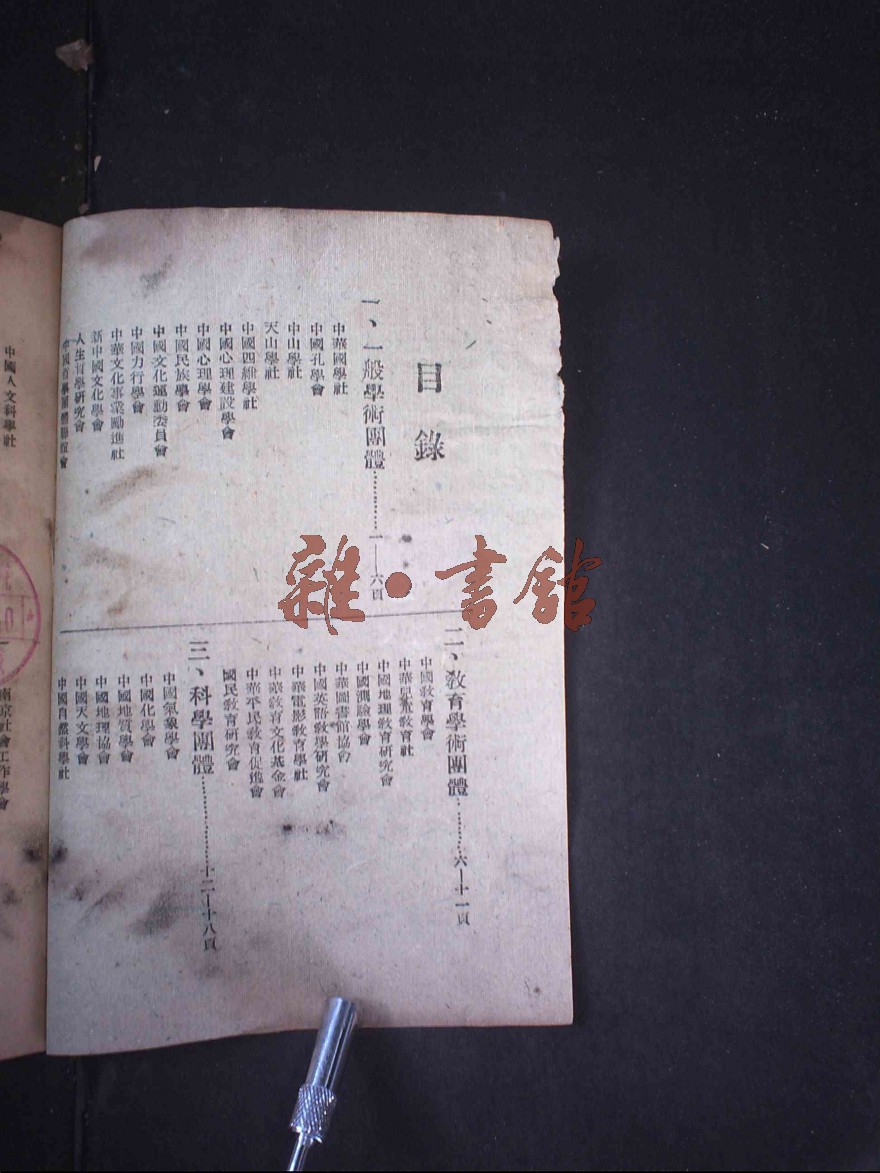 目錄
一、一般學術團體…………一—六頁
中華國學社
中國孔學會
中山學社
天山學社
中國四維學社
中國心理建設學會
中國心理學會
中國民族學會
中國文化運動委員會
中國力行學會
中華文化事業勵進社
新中國文化學會
人生哲學研究會
中國
學團體聯誼會
二、教育學術團體………六—十一頁
中國教育學會
中華兒童教育社
中國地理教育研究會
中國測驗學會
中華圖書館協會
中國英語教學研究會
中華電影教育學社
中華教育文化基金會
中華平民教育促進會
國民教育研究會
三、科學團體…………十二—十八頁
中國氣象學會
中國化學會
中國地質學會
中國地理協會
中國天文學會
中國自然科學社
中國人文科學社
南京社會工作學會
雜•書館